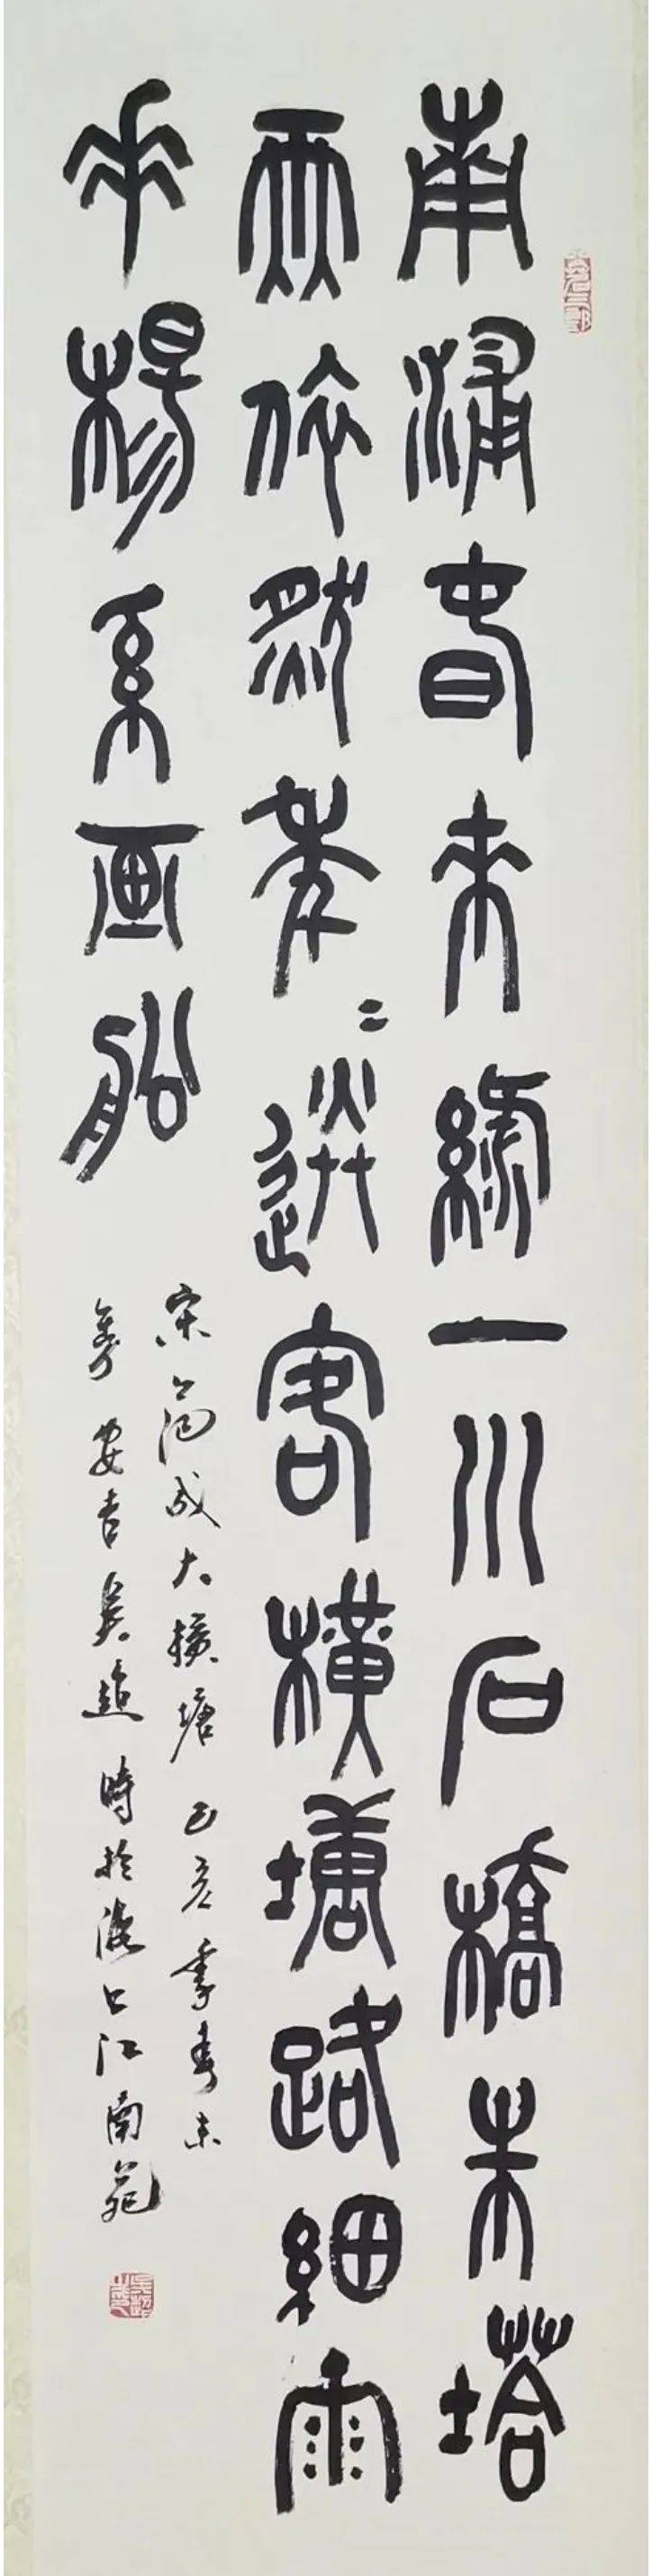 南浦春來綠一川石橋朱塔
兩依然年々送客橫塘路細雨
垂楊系画船
宋范成大橫塘 己亥季春末
安吉吳 時於海上江南苑